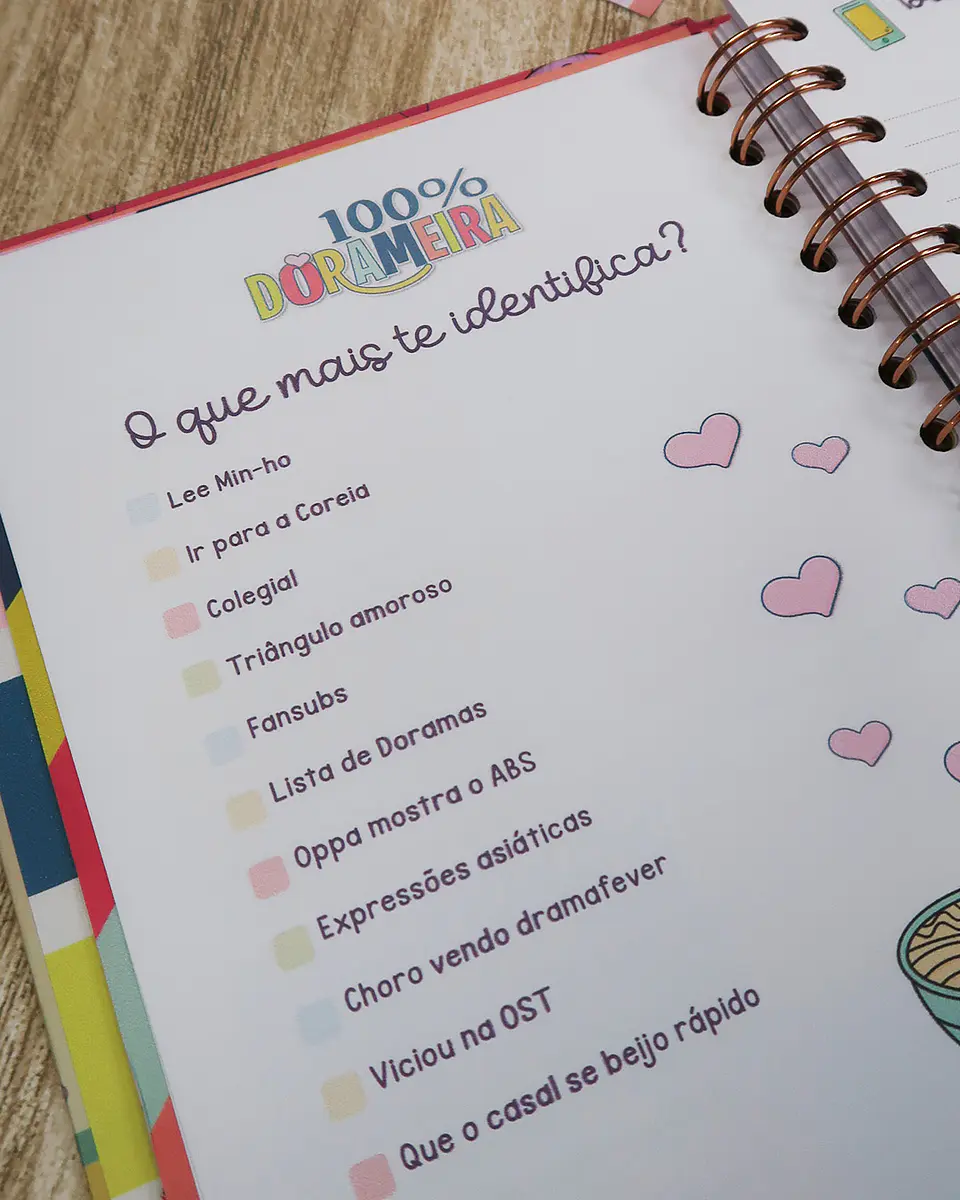 100%
DORAMEIRA
O que mais te identifica?
Lee Min-ho
Ir para a Coreia
Colegial
Triângulo amoroso
Fansubs
Lista de Doramas
Oppa mostra o ABS
Expressões asiáticas
Choro vendo dramafever
Viciou na OST
Que o casal se beijo rápido